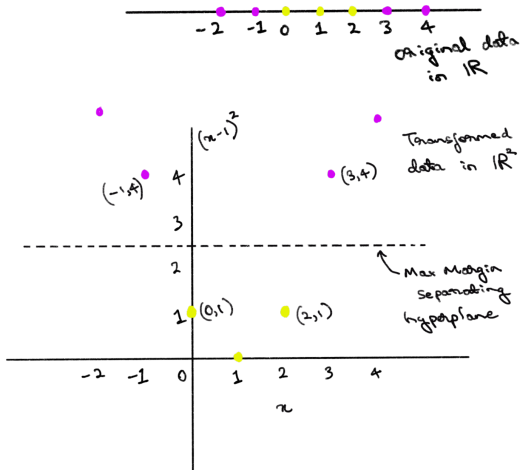 -2 -1 0 1 2 3 4
original data
in IR
(x-1)²
Transformed
data in IR²
4
(-1,4)
(3,4)
3
2
Max Margin
separating
hyperplane
1
(0,1)
(2,1)
-2 -1 0 1 2 3 4
x